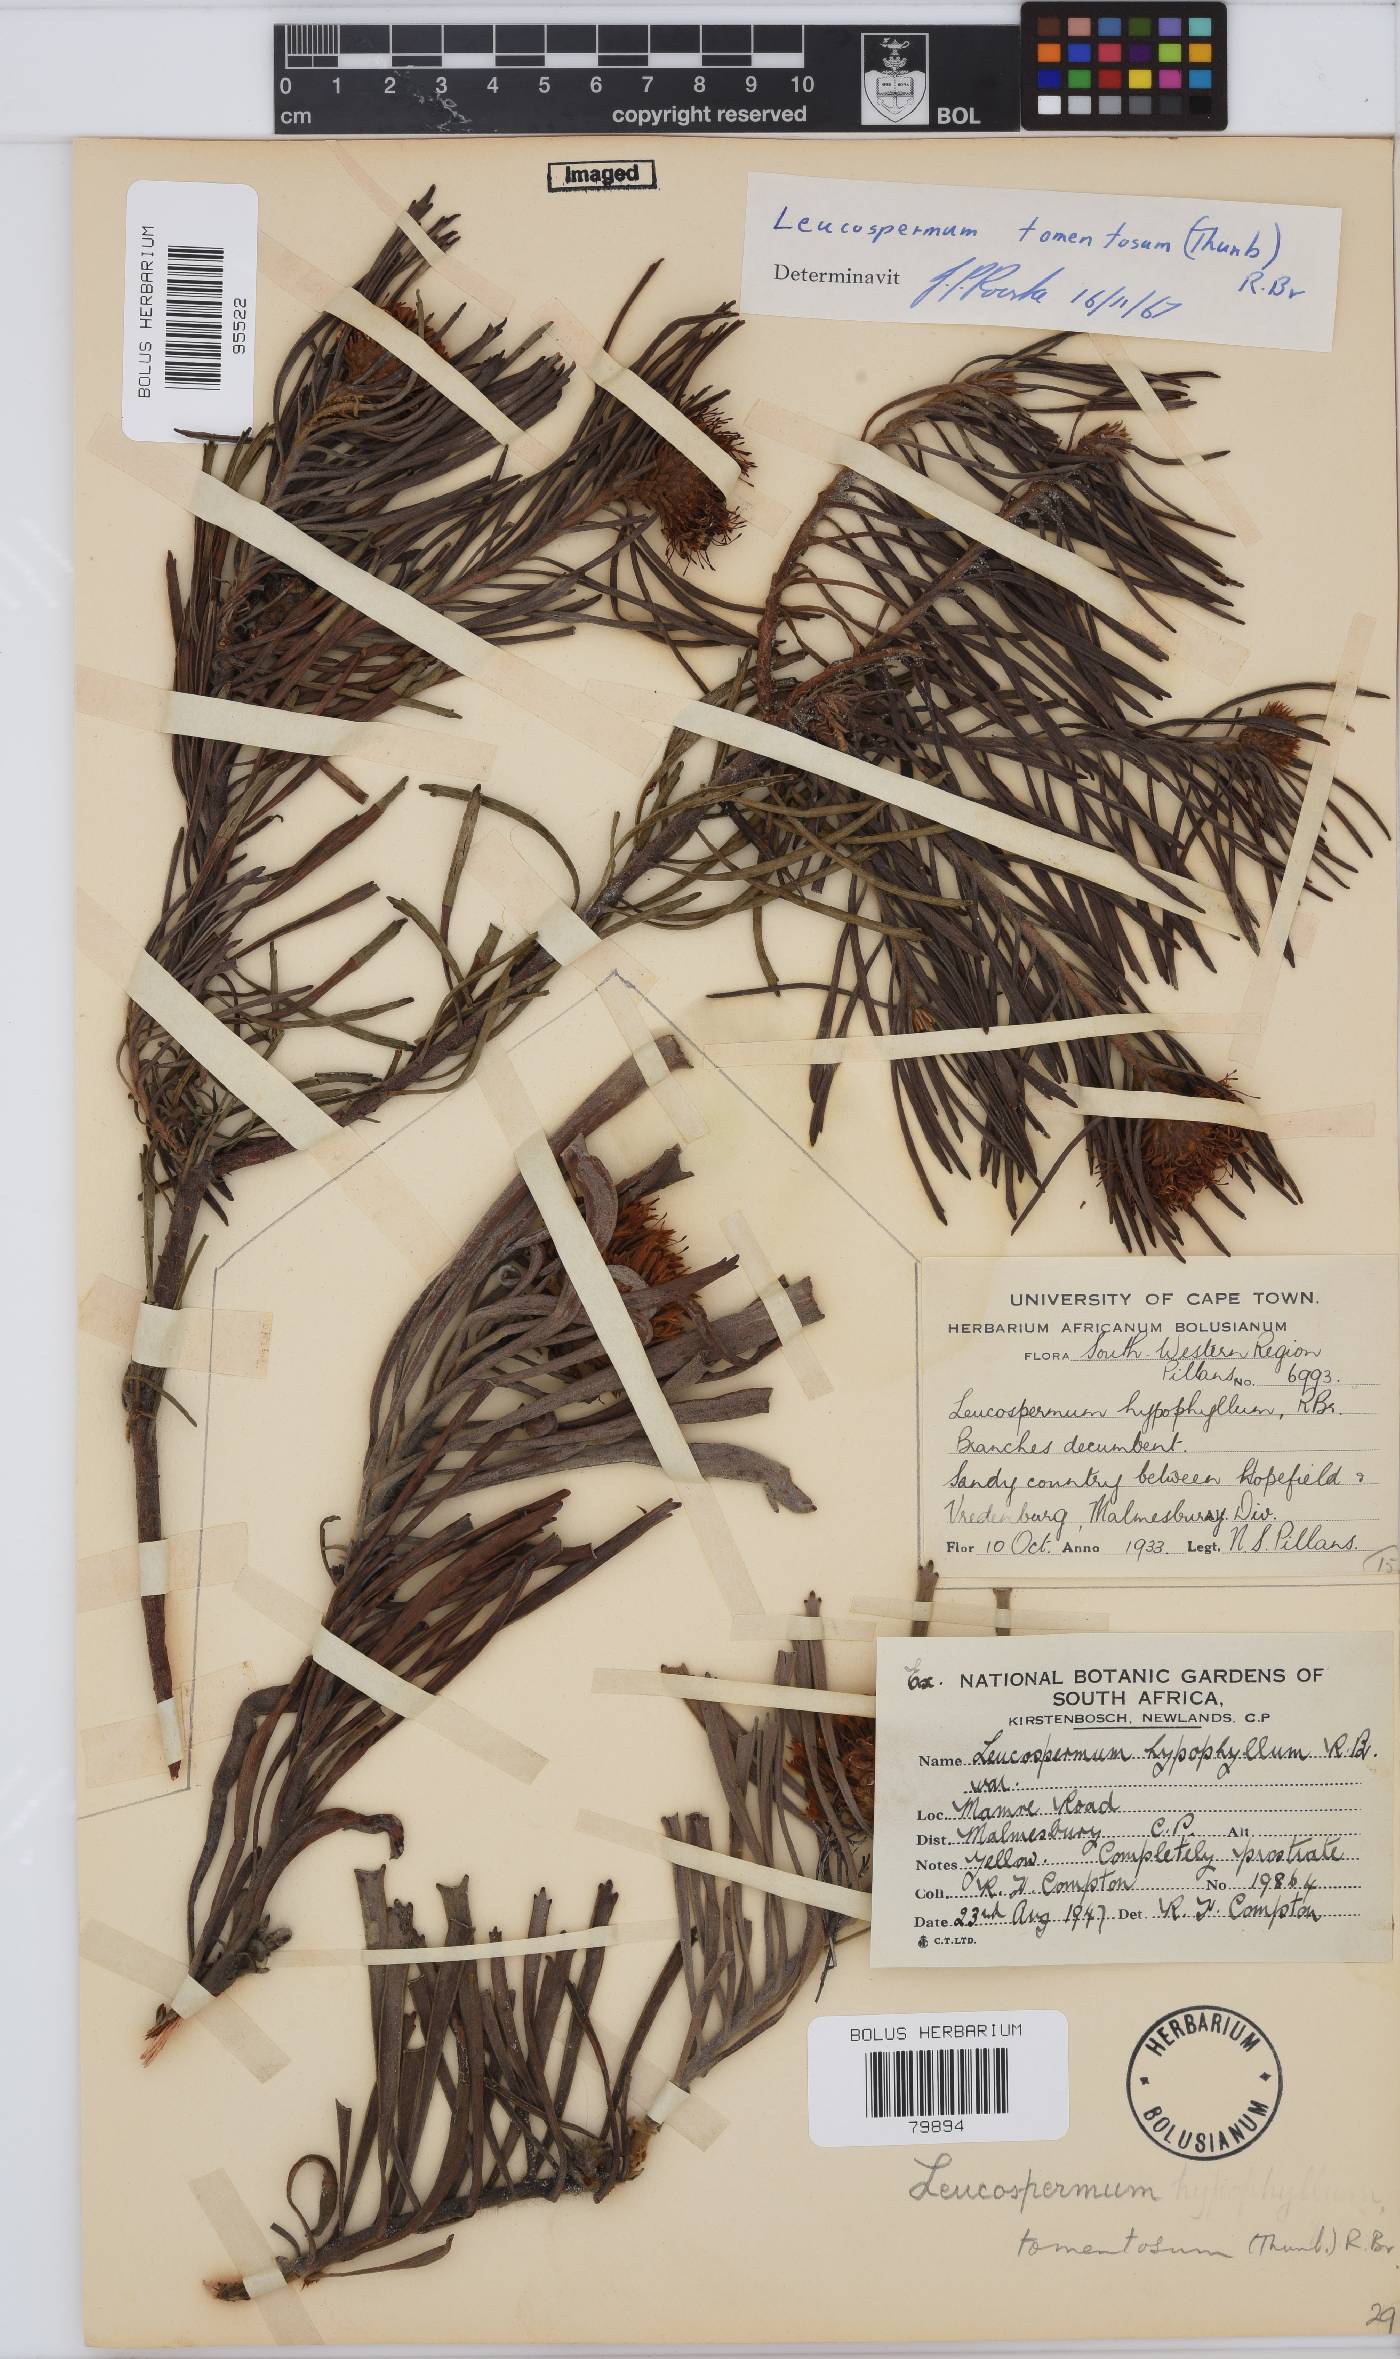 0 1 2 3 4 5 6 7 8 9 10
cm
copyright reserved
BOL
Imaged
BOLUS HERBARIUM
95522
Leucospermum tomentosum (Thunb)
R.Br
Determinavit J.P.Rourke 16/11/67
UNIVERSITY OF CAPE TOWN.
HERBARIUM AFRICANUM BOLUSIANUM
FLORA South-Western Region
Pillans No. 6993.
Leucospermum hypophyllum, R.Br.
Branches decumbent.
Sandy country between Hopefield &
Vredenburg, Malmesbury Div.
Flor 10 Oct. Anno 1933. Legt. N.S.Pillans.
Ex. NATIONAL BOTANIC GARDENS OF
SOUTH AFRICA,
KIRSTENBOSCH, NEWLANDS, C.P
Name Leucospermum hypophyllum R.Br.
var.
Loc. Mamre Road
Dist. Malmesbury C.P. Alt
Notes Yellow. Completely prostrate
Coll. R. H. Compton No 19864
Date 23rd Aug 1947 Det R. H. Compton
C.T.LTD.
BOLUS HERBARIUM
79894
HERBARIUM
BOLUSIANUM
Leucospermum hypophyllum,
tomentosum (Thunb.) R.Br.
29